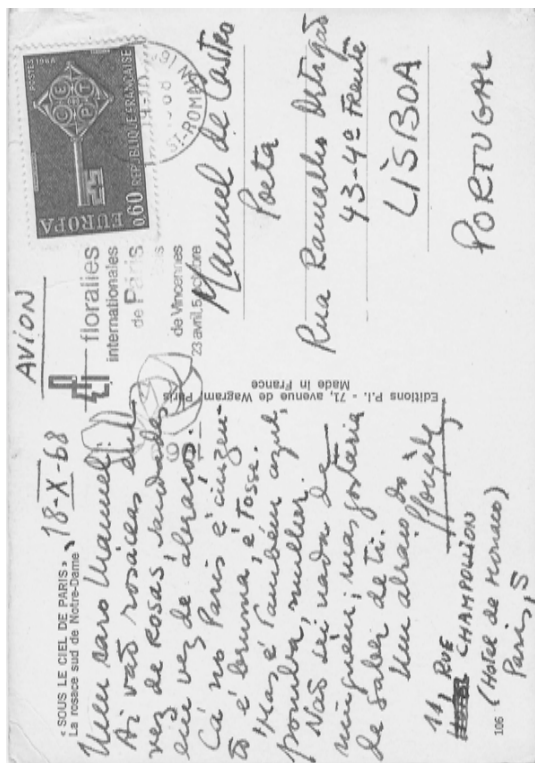 « SOUS LE CIEL DE PARIS »
La rosace sud de Notre-Dame
18-X-68
Meu caro Manuel:
Aí vão rosáceas em
vez de rosas, saudades
em vez de abraços.
Cá no Paris é cinzen-
to é bruma, é tosse.
Mas é também azul,
pomba, mulher.
Não sei nada de
ninguém, mas gostaria
de saber de ti.
Um abraço do
11, RUE
CHAMPOLLION
(Hotel de Monaco)
Paris, 5
106
Editions P.I. - 71, avenue de Wagram Paris
Made in France
AVION
floralies
internationales
de Paris
de Vincennes
23 avril, 5 octobre
POSTES 1968
EUROPA
CEPT
0,60 REPUBLIQUE FRANÇAISE
Manuel de Castro
Poeta
Rua Ramalho Ortigão
43-4º Frente
LISBOA
PORTUGAL